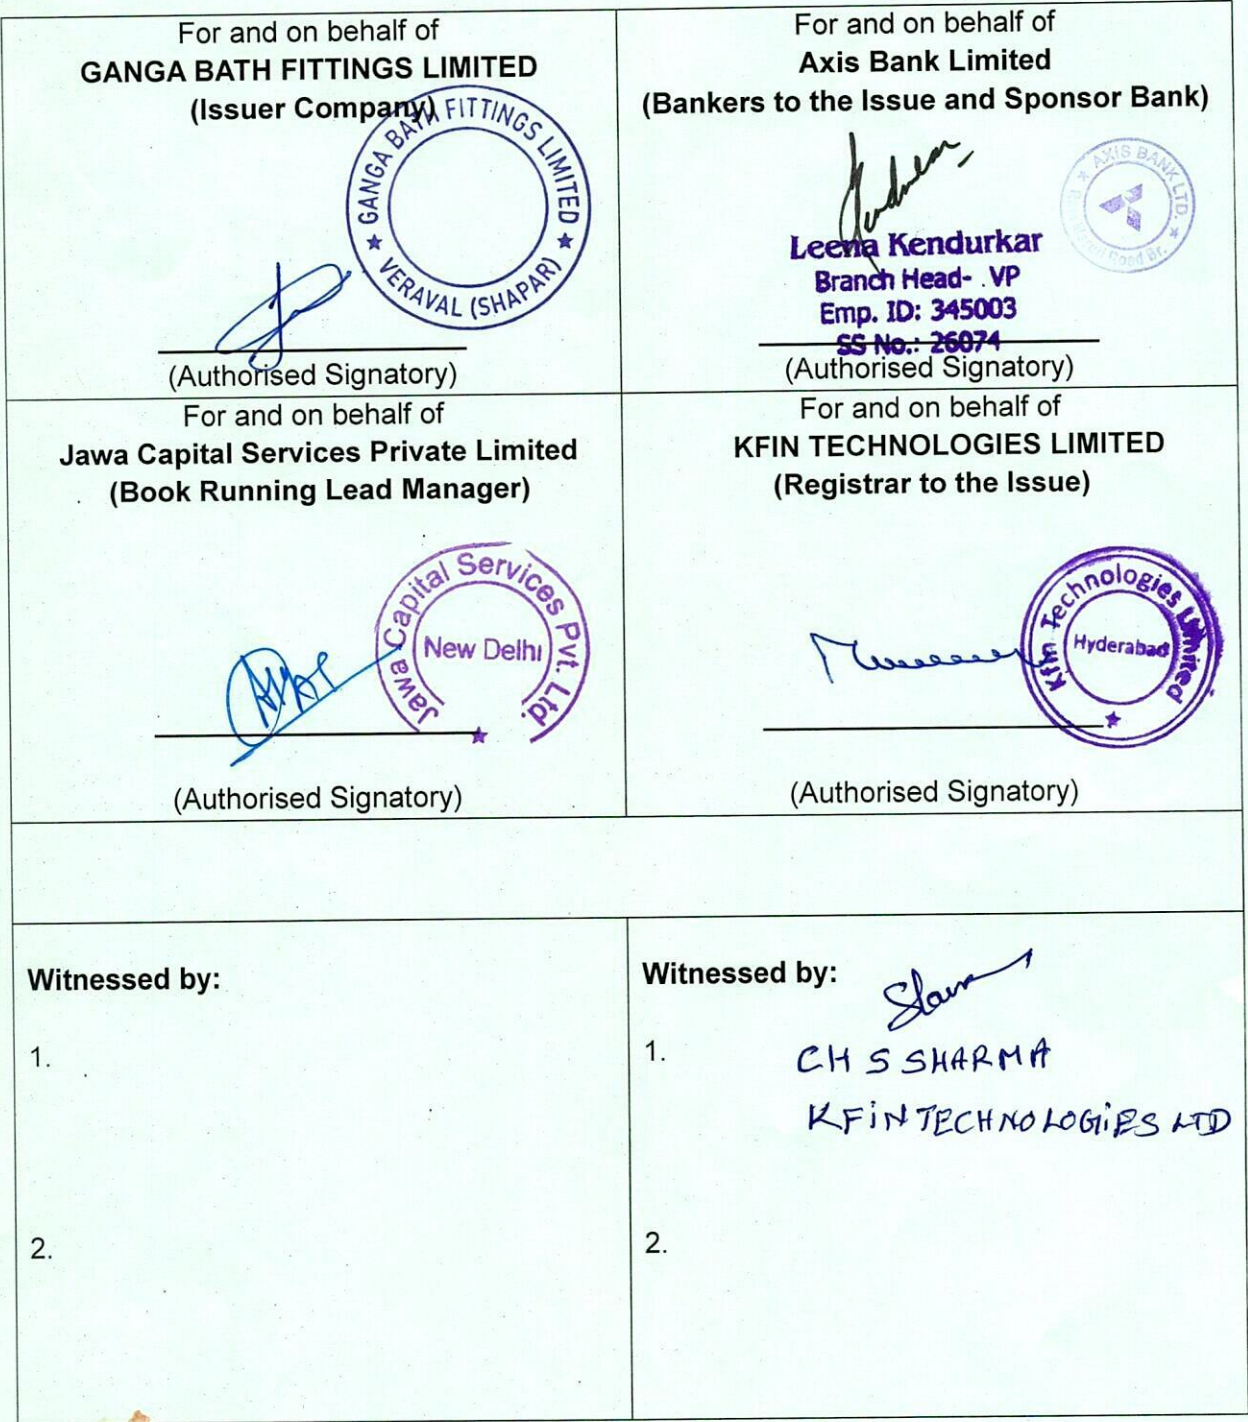 For and on behalf of
GANGA BATH FITTINGS LIMITED
(Issuer Company)
GANGA BATH FITTINGS LIMITED
VERAVAL (SHAPAR)
(Authorised Signatory)
For and on behalf of
Axis Bank Limited
(Bankers to the Issue and Sponsor Bank)
AXIS BANK LTD.
Road Br.
Leena Kendurkar
Branch Head- . VP
Emp. ID: 345003
SS No.: 26074
(Authorised Signatory)
For and on behalf of
Jawa Capital Services Private Limited
(Book Running Lead Manager)
Jawa Capital Services Pvt. Ltd.
New Delhi
(Authorised Signatory)
For and on behalf of
KFIN TECHNOLOGIES LIMITED
(Registrar to the Issue)
Kfin Technologies Limited
Hyderabad
(Authorised Signatory)
Witnessed by:
1.
2.
Witnessed by:
1. CH S SHARMA
KFiN TECHNOLOGiES LTD
2.